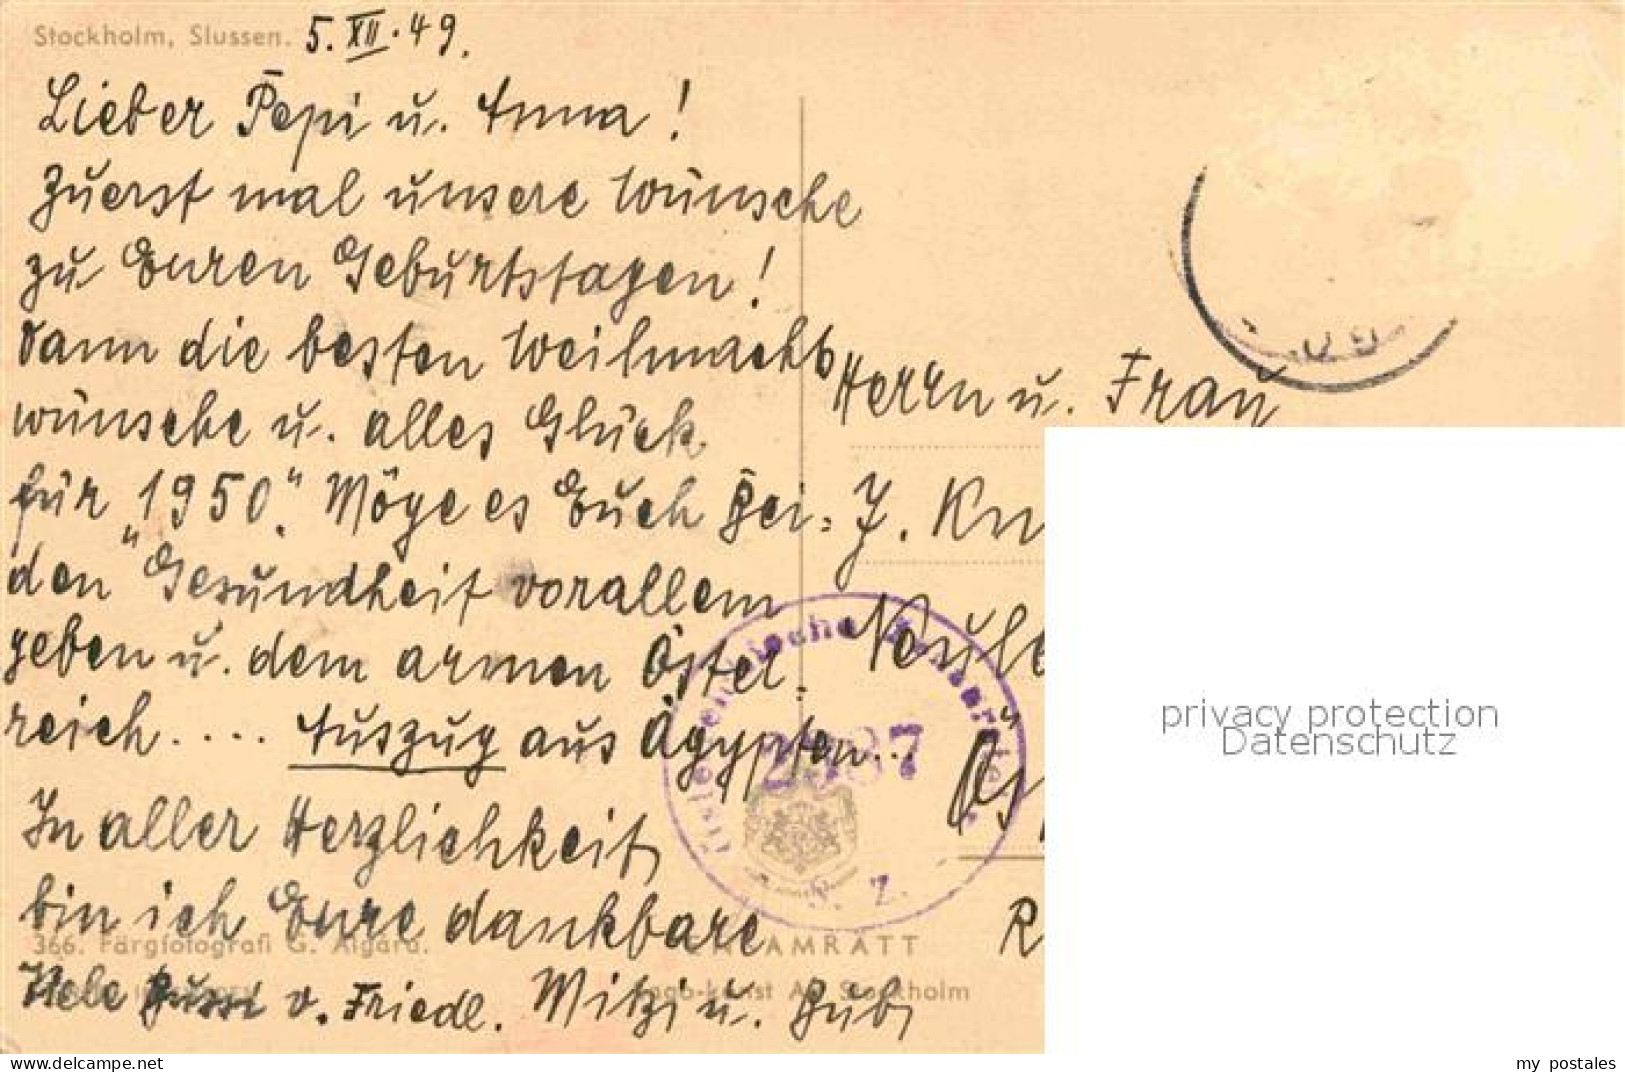 Stockholm, Slussen. 5. XII. 49.
Lieber Pepi u. Anna!
Zuerst mal unsere Wünsche
zu Euren Geburtstagen!
Dann die besten Weihnachts
wünsche u. alles Glück
für „1950“. Möge es Euch Bei=
den "Gesundheit vorallem
geben u. dem armen Öster=
reich.... Auszug aus Ägypten..
In aller Herzlichkeit
bin ich Eure dankbare
v. Friedl. Mitzi u. Bubi
Herrn u. Frau
J. Kn
R
Österreichische Zensurstelle
2937
Z.
366. Färgfotografi G. Algård.
ENSAMRÄTT
Stockholm
privacy protection
Datenschutz
my postales